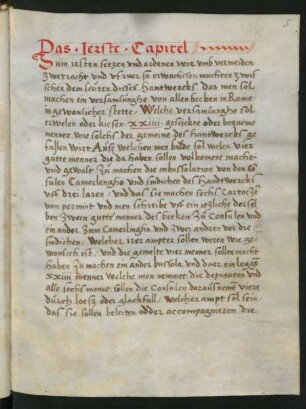 5
Das · Ierste · Capitel
Zum irsten setzen und ordenen wir umb vermeiden
zwetracht und ufruer so erwachssen muchten zwis
schen dem leuten disses hantwercks das men sol
machen ein versamlunghe von allen becken in Rome
in gewonlicher stette / Welche versamlungho sol
erwelen oder kiesen · xxiiij · geschickte oder bequeme
menner wie solchs der gemeine des hantwercks ge
fallen wirt Auss welchen men balde sol welen vier
gutte menner die da haben sollen volkomene macht
und gewalt Zu machen die imbussolation von den Co
sulen Camerlengho und sindichen des hantwercks
uff drei Jaren / und das sie machen sechs Cartocze
von permint und men schreibe uff ein itzliche der sel
ben zween gutte menner des becken Zu Consulen und
ein ander Zum Camerlingho und zwei andern vor die
sindichen / Welcher irer ampter sollen weren wie ge
wonlich ist / und die gemelte vier menner sollen macht
haben zu machen ein ander bussola und dair ein legen
xxiiij menner welche men nemmet die deputaten und
alle sechs monat sollen die Consulen daraus nemen viere
durch loesz oder gluckfall / welcher ampt sol sein
das sie sollen beleiten odder accompagneren die